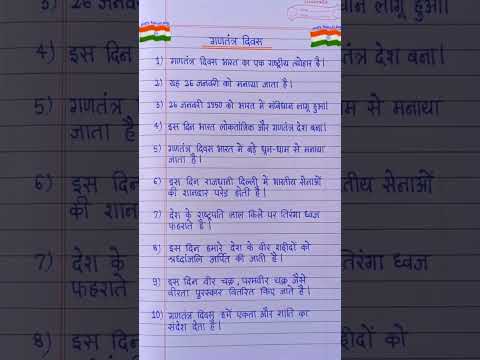 गणतंत्र दिवस
1) गणतंत्र दिवस भारत का एक राष्ट्रीय त्योहार है।
2) यह 26 जनवरी को मनाया जाता है।
3) 26 जनवरी 1950 को भारत में संविधान लागू हुआ।
4) इस दिन भारत लोकतांत्रिक और गणतंत्र देश बना।
5) गणतंत्र दिवस भारत में बड़े धूम-धाम से मनाया
जाता है।
6) इस दिन राजधानी दिल्ली में भारतीय सेनाओं
की शानदार परेड होती है।
7) देश के राष्ट्रपति लाल किले पर तिरंगा ध्वज
फहराते है।
8) इस दिन हमारे देश के वीर शहीदों को
श्रध्दांजलि अर्पित की जाती है।
9) इस दिन वीर चक्र, परमवीर चक्र जैसे
वीरता पुरस्कार वितरित किए जाते है।
10) गणतंत्र दिवस हमें एकता और शांति का
संदेश देता है।
4) इस दिन
5) गणतंत्र
जाता है
6) इस दिन
की शा
7) देश के
फहराते
8) इस दिन
लागू हुआ।
देश बना।
म से मनाया
तीय सेनाओं
तिरंगा ध्वज
हीदों को